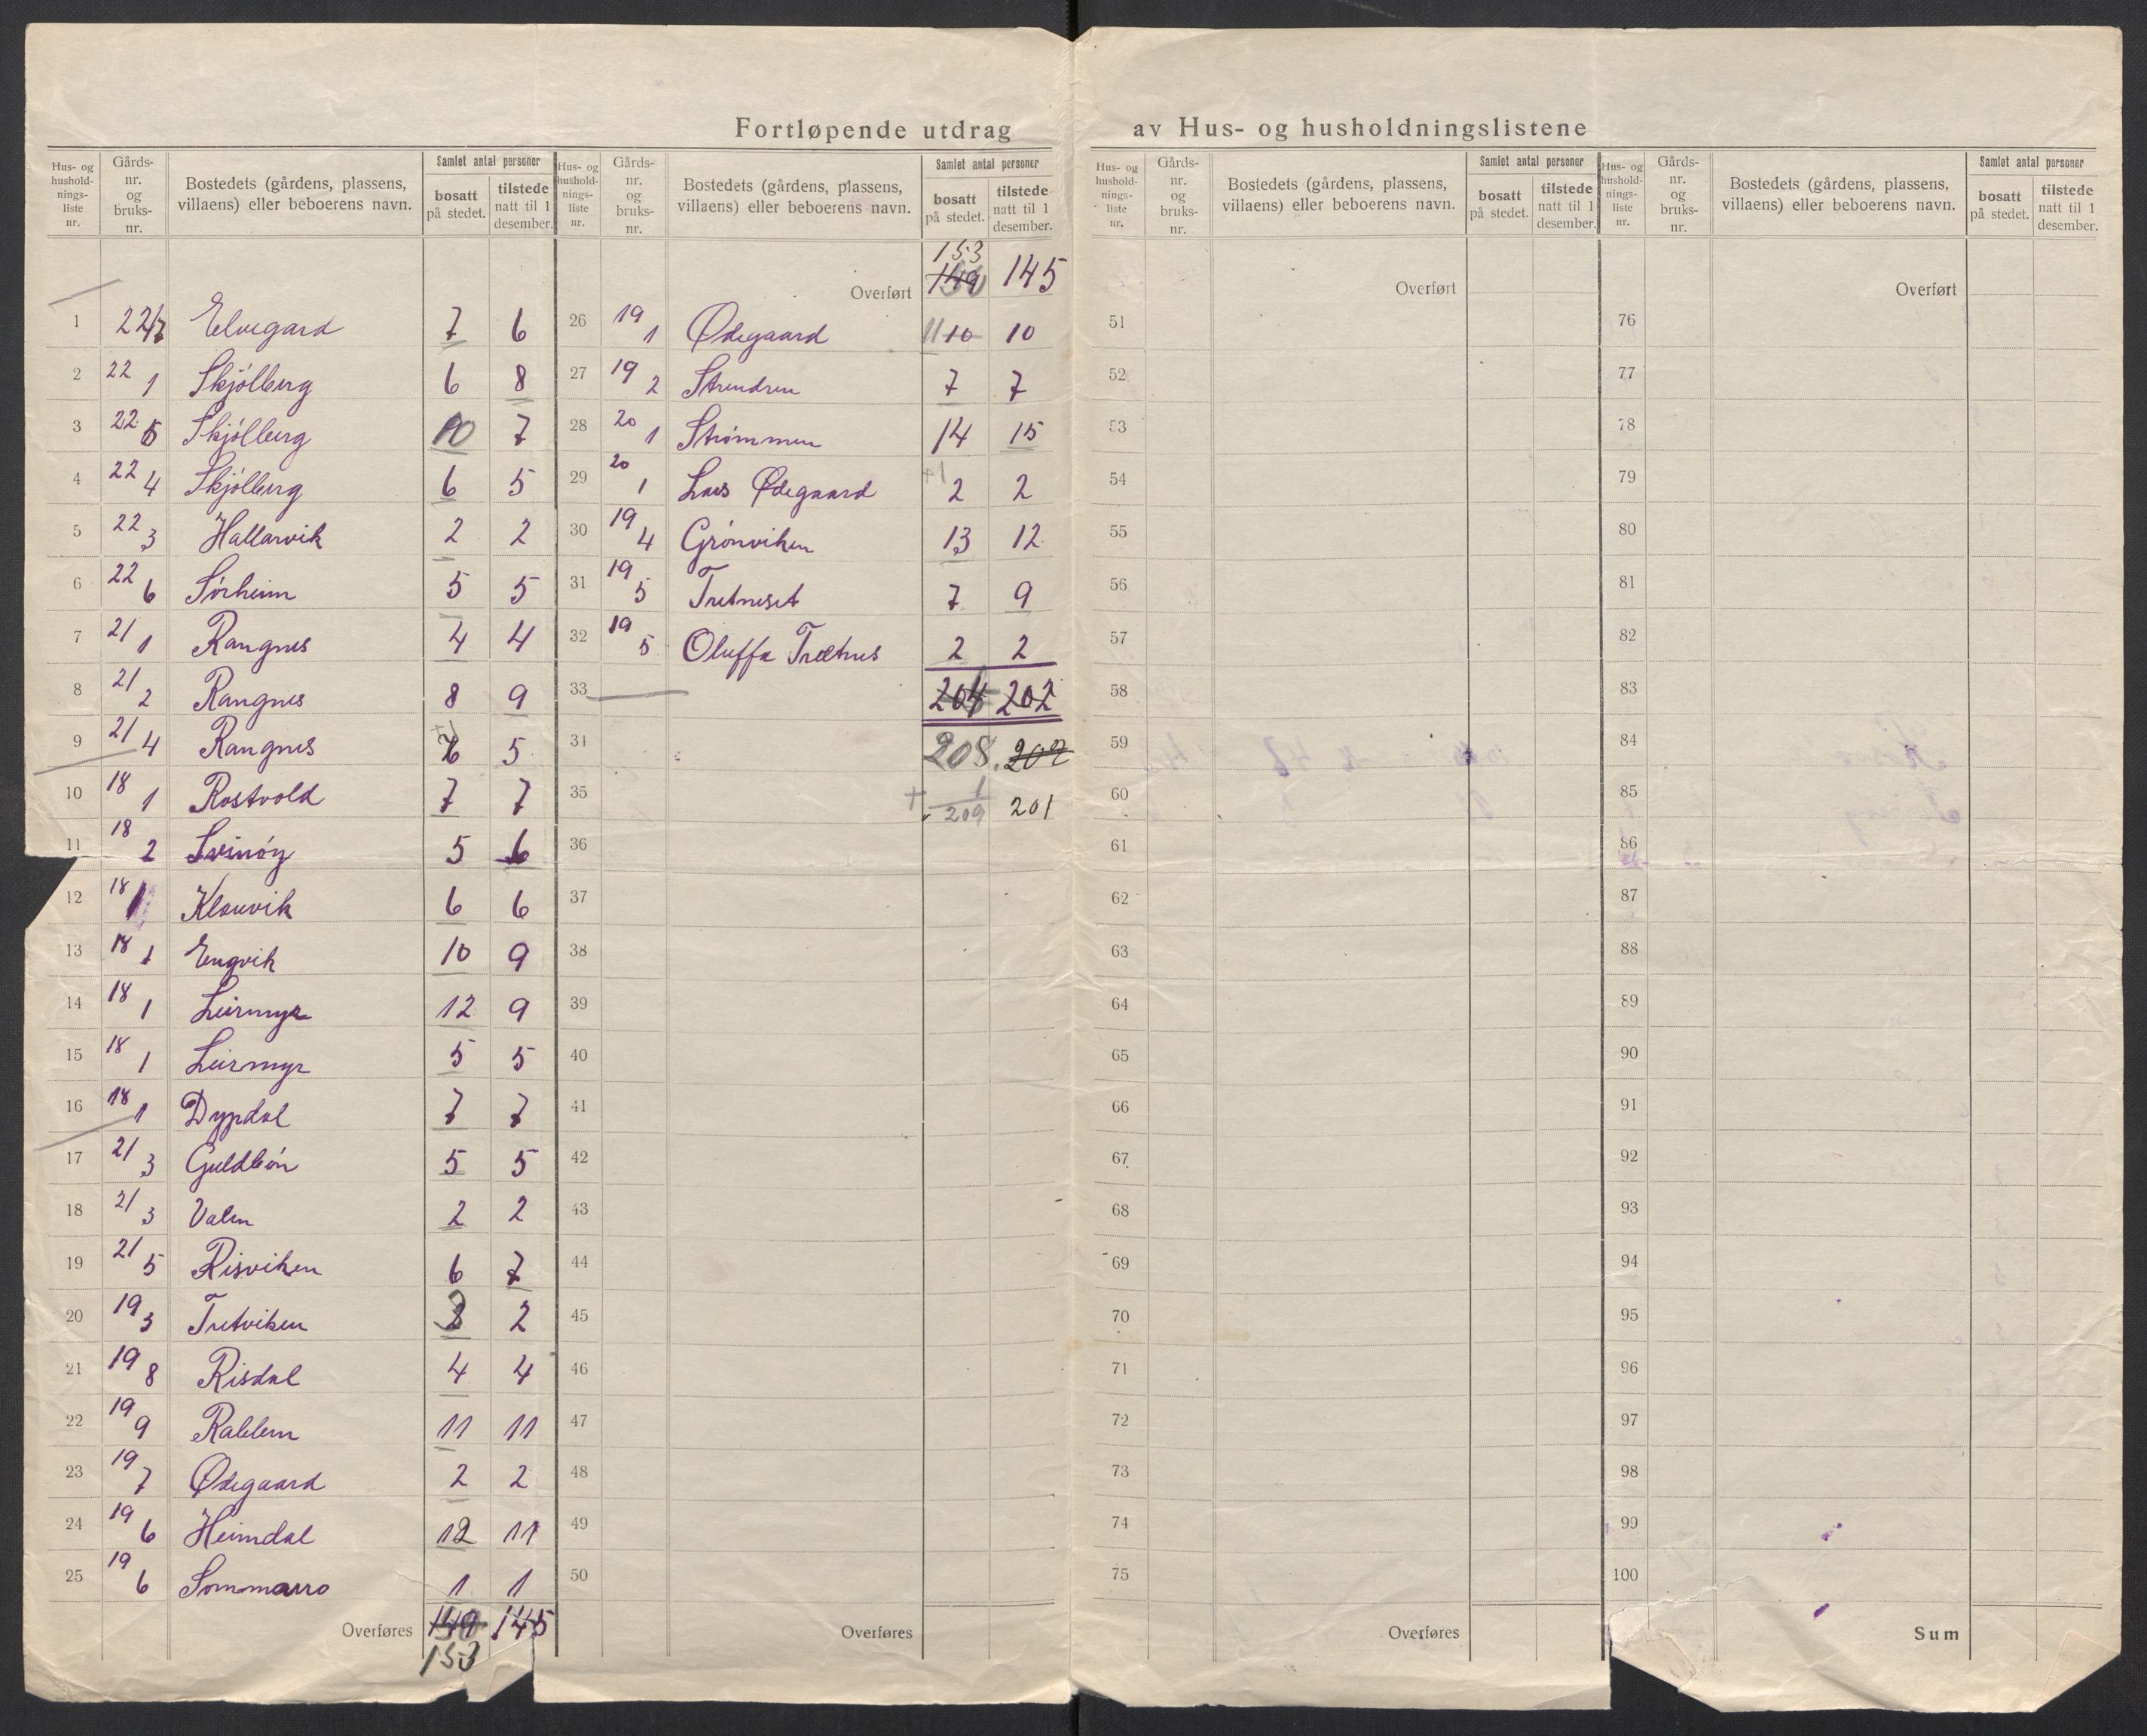 Fortløpende utdrag av Hus- og husholdningslistene
Hus- og hushold- nings- liste nr. | Gårds- nr. og bruks- nr. | Bostedets (gårdens, plassens, villaens) eller beboerens navn. | Samlet antal personer | bosatt på stedet. | tilstede natt til 1 desember.
1 22/7 Elvegard 7 6
2 22 1 Skjølberg 6 8
3 22 5 Skjølberg 10 7
4 22 4 Skjølberg 6 5
5 22 3 Hallarvik 2 2
6 22 6 Sørheim 5 5
7 21 1 Rangnes 4 4
8 21 2 Rangnes 8 9
9 21 4 Rangnes 5
10 18 1 Rostvold 7 7
11 18 2 Svinøy 5 6
12 18 1 Klauvik 6 6
13 18 1 Engvik 10 9
14 18 1 Leirmyr 12 9
15 18 1 Leirmyr 5 5
16 18 1 Dypdal 7 7
17 21 3 Guldbøn 5 5
18 21 3 Valen 2 2
19 21 5 Risviken 6 7
20 19 3 Tretviken 3 2
21 19 8 Risdal 4 4
22 19 9 Rablem 11 11
23 19 7 Ødegaard 2 2
24 19 6 Heimdal 12 11
25 19 6 Sommarro 1 1
Overføres 149 145
153
Hus- og hushold- nings- liste nr. | Gårds- nr. og bruks- nr. | Bostedets (gårdens, plassens, villaens) eller beboerens navn. | Samlet antal personer | bosatt på stedet. | tilstede natt til 1 desember.
153
Overført 149 145
26 19 1 Ødegaard 11 10 10
27 19 2 Strendren 7 7
28 20 1 Strømmen 14 15
29 20 1 Lars Ødegaard +1 2 2
30 19 4 Grønviken 13 12
31 19 5 Tretneset 7 9
32 19 5 Oluffa Trætnes 2 2
33 204 202
31 208. 202
35 + 1
209 201
36
37
38
39
40
41
42
43
44
45
46
47
48
49
50
Overføres
Hus- og hushold- nings- liste nr. | Gårds- nr. og bruks- nr. | Bostedets (gårdens, plassens, villaens) eller beboerens navn. | Samlet antal personer | bosatt på stedet. | tilstede natt til 1 desember.
Overført
51
52
53
54
55
56
57
58
59
60
61
62
63
64
65
66
67
68
69
70
71
72
73
74
75
Overføres
Hus- og hushold- nings- liste nr. | Gårds- nr. og bruks- nr. | Bostedets (gårdens, plassens, villaens) eller beboerens navn. | Samlet antal personer | bosatt på stedet. | tilstede natt til 1 desember.
Overført
76
77
78
79
80
81
82
83
84
85
86
87
88
89
90
91
92
93
94
95
96
97
98
99
100
Sum